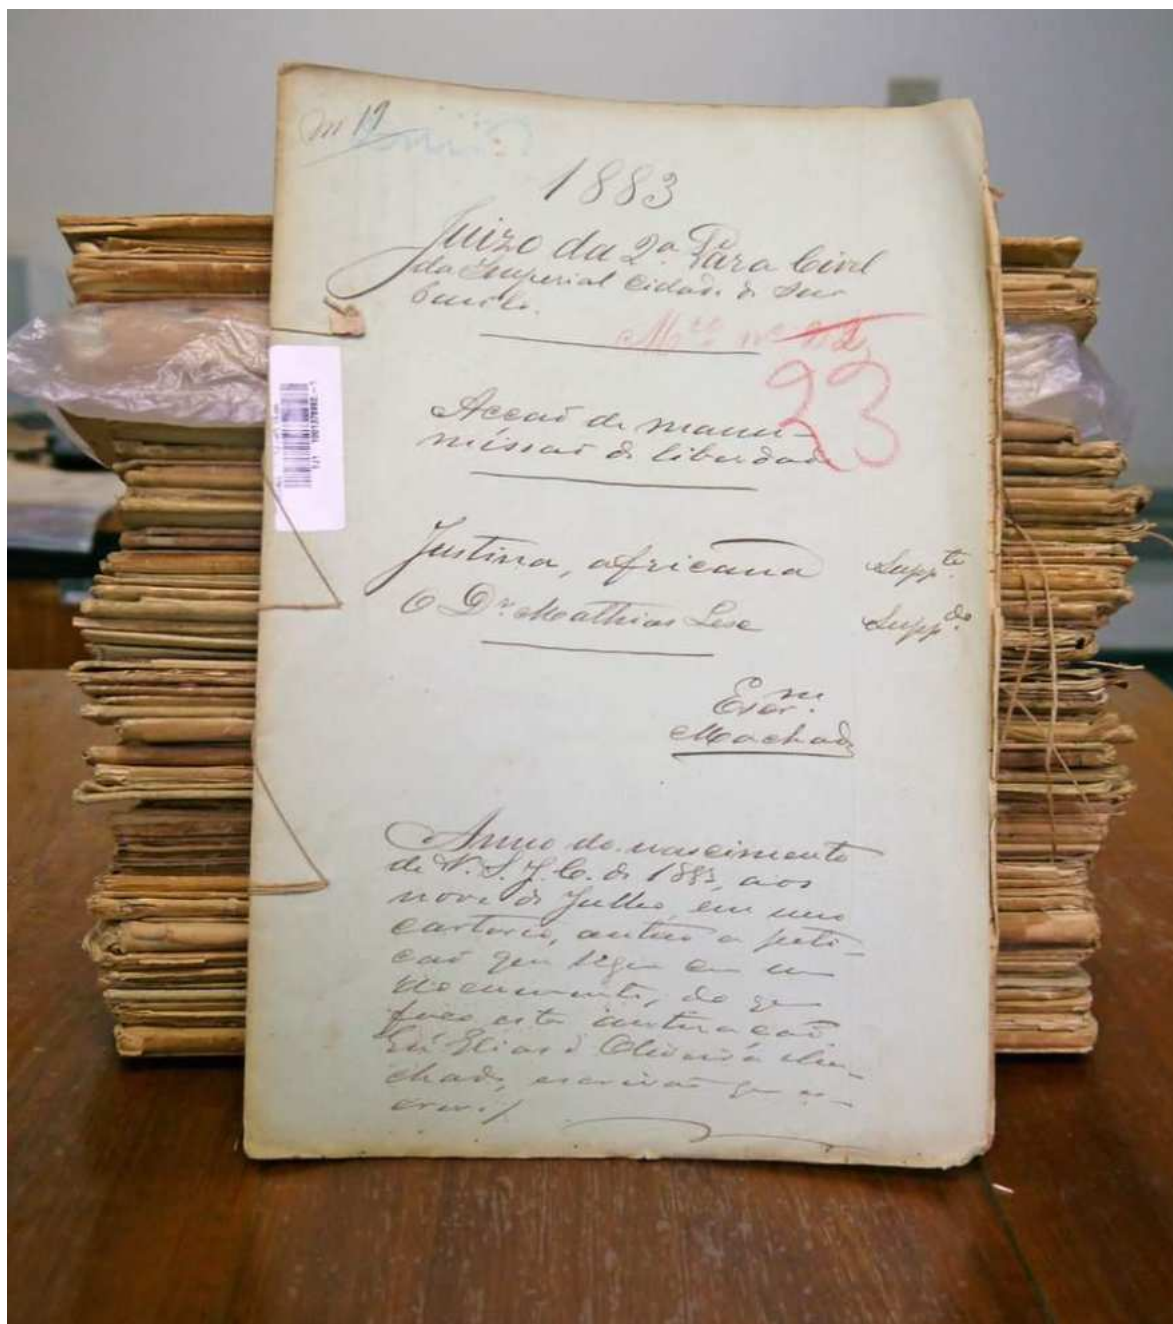 m 19
1883
Juizo da 2ª Vara Civel
da Imperial Cidade de São
Paulo.
Mço nº
23
Acção de manu-
missão de liberdade
Justina, africana Suppte.
O Dr. Mathias Lex Suppdo.
Escrm.
Machado
Anno do nascimento
de N. S. J. C. de 1883, aos
nove de Julho, em meu
cartorio, autuo a peti-
ção que segue em um
documento, do que
faço esta autuação
Eu Elias d' Oliveira Ma-
chado, escrivão que es-
crevi